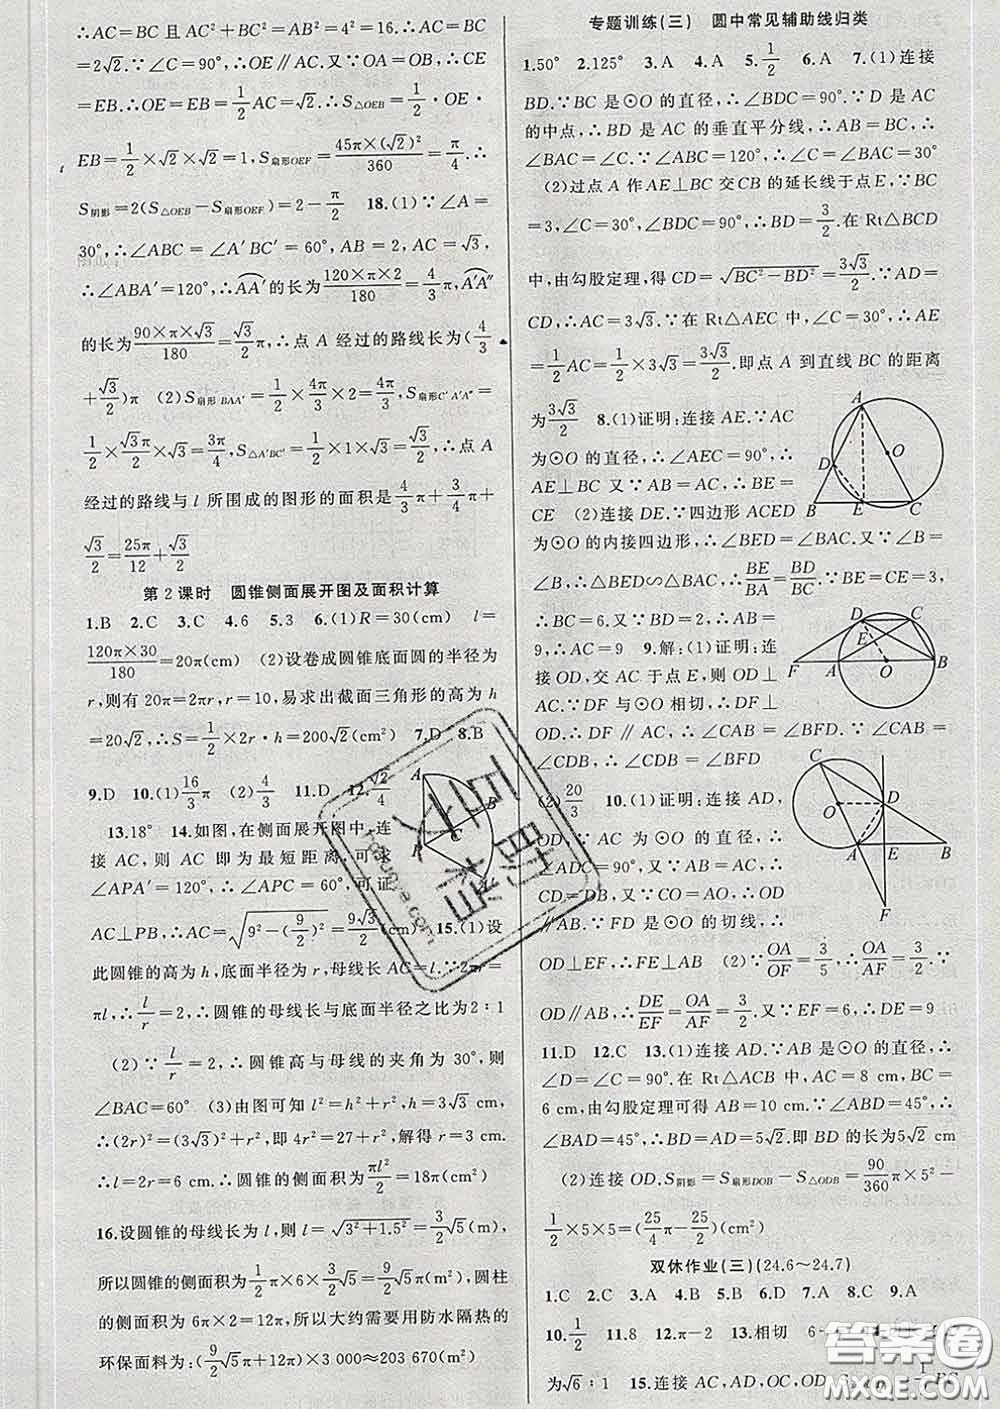 ∴AC=BC 且 AC²+BC²=AB²=4²=16.∴AC=BC=
2√2.∵∠C=90°,∴OE∥AC.又 OA=OB,∴OE=BE=CE
=EB.∴OE=EB=1/2AC=√2.∴S△OEB=1/2·OE·
EB=1/2×√2×√2=1,S扇形OEF=45π×(√2)²/360=π/4.∴
S阴影=2(S△OEB−S扇形OEF)=2−π/2 18.(1)∵∠A=
30°,∴∠ABC=∠A′BC′=60°,AB=2,AC=√3,
∴∠ABA′=120°,∴AA′的长为120×π×2/180=4/3π,A′A″
的长为90×π×√3/180=√3/2π,∴点 A 经过的路线长为(4/3
+√3/2)π (2)S扇形BAA′=1/2×4π/3×2=4π/3,S扇形C′A′A″=
1/2×√3π/2×√3=3π/4,S△A′BC′=1/2×1×√3=√3/2,∴点 A
经过的路线与 l 所围成的图形的面积是4/3π+3/4π+
√3/2=25π/12+√3/2
第 2 课时 圆锥侧面展开图及面积计算
1.B 2.C 3.C 4.6 5.3 6.(1)R=30(cm) l=
120π×30/180=20π(cm) (2)设卷成圆锥底面圆的半径为
r,则有 20π=2πr,r=10,易求出截面三角形的高为 h
=20√2,∴S=1/2×2r·h=200√2(cm²) 7.D 8.B
9.D 10.(1)16/3π (2)4/3 11.D 12.√2/4
13.18° 14.如图,在侧面展开图中,连
接 AC,则 AC 即为最短距离,可求
∠APA′=120°,∴∠APC=60°,可证
AC⊥PB,∴AC=√9²−(9/2)²=9√3/2(cm) 15.(1)设
此圆锥的高为 h,底面半径为 r,母线长 AC=l.∵2πr=
πl,∴l/r=2,∴圆锥的母线长与底面半径之比为 2∶1
(2)∵l/r=2,∴圆锥高与母线的夹角为 30°,则
∠BAC=60° (3)由图可知 l²=h²+r²,h=3√3 cm,
∴(2r)²=(3√3)²+r²,即 4r²=27+r²,解得 r=3 cm,
∴l=2r=6 cm,∴圆锥的侧面积为πl²/2=18π(cm²)
16.设圆锥的母线长为 l,则 l=√3²+1.5²=3/2√5(m),
所以圆锥的侧面积为1/2π×6×3/2√5=9/2√5π(m²),圆柱
的侧面积为 6π×2=12π(m²),所以大约需要用防水隔热的
环保面料为:(9/2√5π+12π)×3 000≈203 670(m²)
专题训练(三) 圆中常见辅助线归类
1.50° 2.125° 3.A 4.A 5.1/2 6.A 7.(1)连接
BD.∵BC 是⊙O 的直径,∴∠BDC=90°.∵D 是 AC
的中点,∴BD 是 AC 的垂直平分线,∴AB=BC,∴
∠BAC=∠C.∵∠ABC=120°,∴∠C=∠BAC=30°
(2)过点 A 作AE⊥BC 交CB 的延长线于点E,∵BC
=3,∠C=30°,∠BDC=90°,∴BD=3/2.在 Rt△BCD
中,由勾股定理,得 CD=√BC²−BD²=3√3/2.∵AD=
CD,∴AC=3√3.∵在 Rt△AEC 中,∠C=30°,∴AE
=1/2AC=1/2×3√3=3√3/2.即点 A 到直线 BC 的距离
为3√3/2 8.(1)证明:连接 AE.∵AC
为⊙O 的直径,∴∠AEC=90°,∴
AE⊥BC 又∵AB=AC,∴BE=
CE (2)连接 DE.∵四边形 ACED
为⊙O 的内接四边形,∴∠BED=∠BAC.又∵∠B=
∠B,∴△BED∽△BAC,∴BE/BA=BD/BC.∵BE=CE=3,
∴BC=6.又∵BD=2,∴AB=
9,∴AC=9 9.解:(1)证明:连
接 OD,交 AC 于点 E,则 OD⊥
AC.∵DF 与⊙O 相切,∴DF⊥
OD.∴DF∥AC,∴∠CAB=∠BFD.∵∠CAB=
∠CDB,∴∠CDB=∠BFD
(2)20/3 10.(1)证明:连接 AD,
OD.∵AC 为⊙O 的直径,∴
∠ADC=90°.又∵AC=AB,∴
CD=DB,又 CO=AO,∴OD
∥AB.∵FD 是⊙O 的切线,∴
OD⊥EF,∴FE⊥AB (2)∵OA/OF=3/5,∴OA/AF=3/2.∵
OD∥AB,∴DE/EF=OA/AF=3/2.又∵EF=6,∴DE=9
11.D 12.C 13.(1)连接 AD.∵AB 是⊙O 的直径,∴
∠D=∠C=90°.在 Rt△ACB 中,AC=8 cm,BC=
6 cm,由勾股定理可得 AB=10 cm,∵∠BCD=45°,∴
∠BAD=45°,∴BD=AD=5√2.即 BD 的长为5√2 cm
(2)连接 OD.S阴影=S扇形DOB−S△ODB=90/360π×5²−
1/2×5×5=(25/4π−25/2)(cm²)
双休作业(三)(24.6~24.7)
1.C 2.C 3.A 4.B 5.B 6.D 7.A 8.C 9.A
10.1/2 11.8 12.π−2 13.相切
为√6∶1 15.连接 AC,AD,OC,OD
答案圈